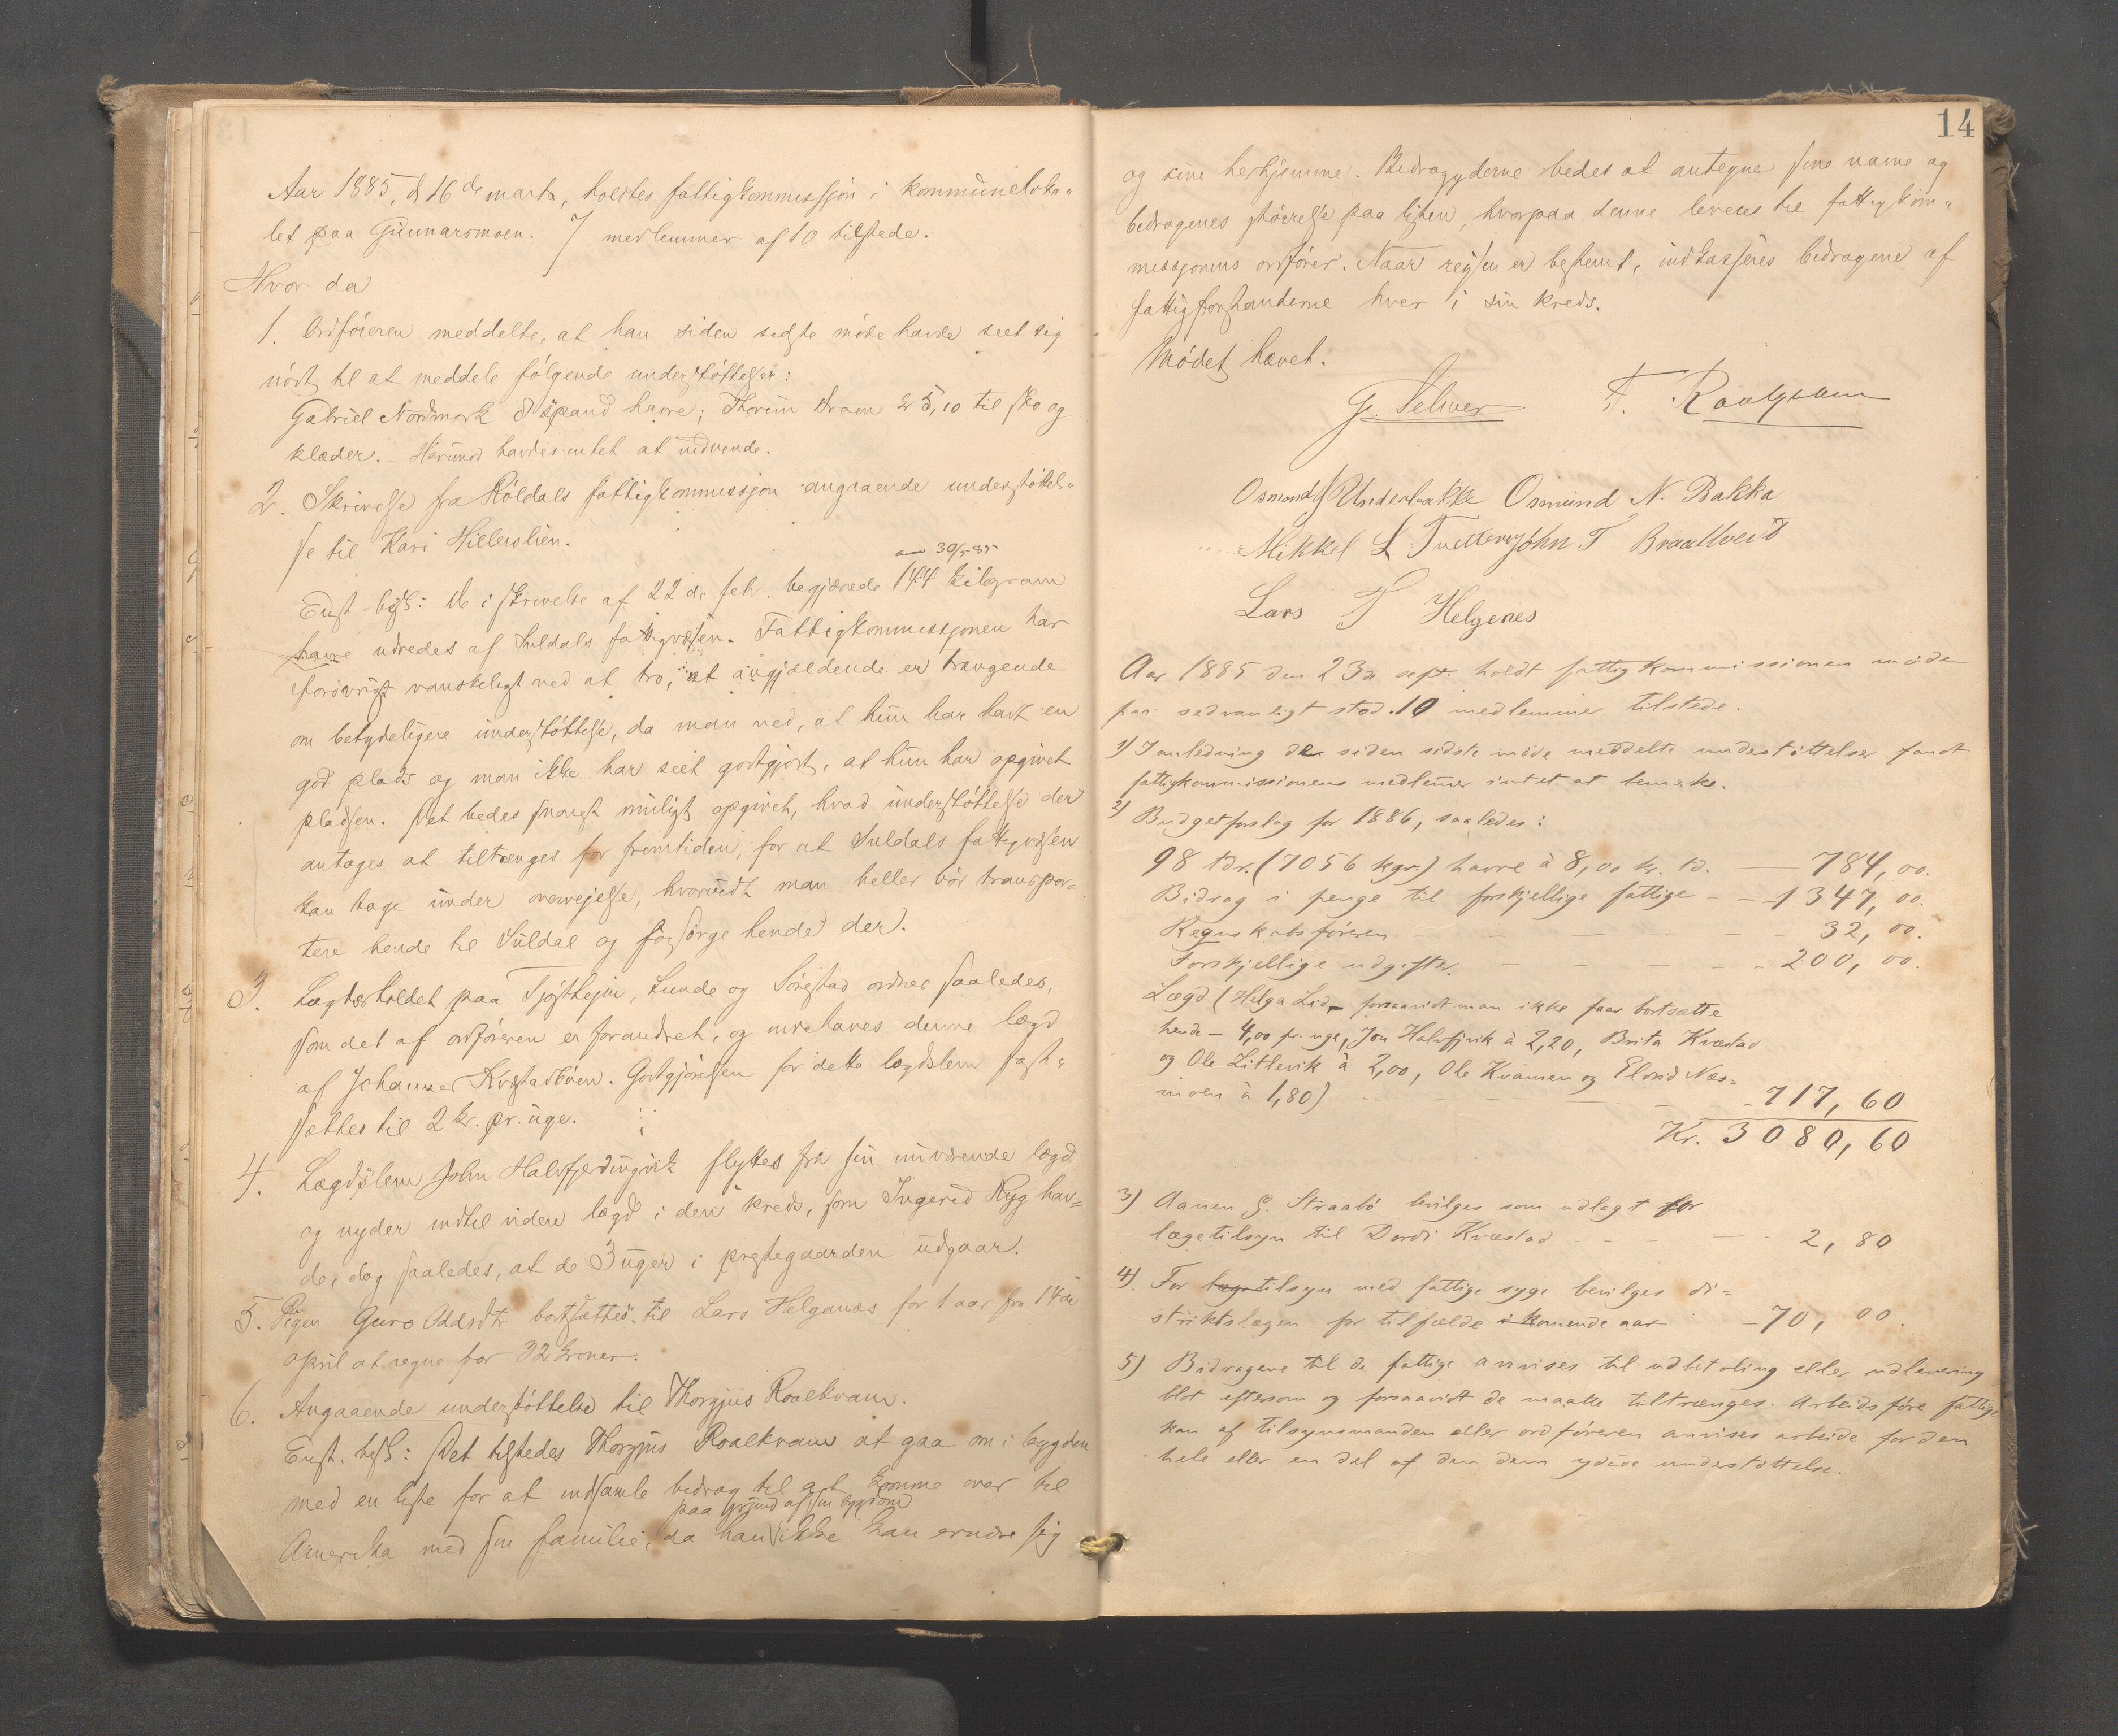 Aar 1885, d. 16de marts, holdtes fattigkommissjon i kommuneloka-
let paa Gunnarsmoen. 7 medlemmer af 10 tilstede.
Hvor da
1. Ordföreren meddelte, at han siden sidste möde havde seet sig
nödt til at meddele fölgende understöttelser:
Gabriel Nordmork spand havre; Thorun Kr 5,10 til sko og
klæder. - Herimod havdes intet at indvende.
2. Skrivelse fra Röldals fattigkommissjon angaaende understöttel-
se til Kari Hillerslien.
30/5 85
Enst. besl: De i skrivelse af 22de febr. begjærede 144 kilogram
havre udredes af Suldals fattigvæsen. Fattigkommissjonen har
forövrigt vanskeligt ved at tro, at angjældende er trængende
om betydeligere understöttelse, da man ved, at hun har havt en
god plads og man ikke har seet godtgjort, at hun har opgivet
pladsen. Det bedes snarest muligt opgivet, hvad understöttelse der
antages at tiltrænges for fremtiden, for at Suldals fattigvæsen
kan tage under overvejelse, hvorvidt man heller bör transpor-
tere hende til Suldal og forsörge hende der.
3. Lægderholdet paa Tjöstheim, Lunde og Sörestad ordnes saaledes,
som det af ordföreren er forandret, og indtages denne lægd
af Johannes Kvæstadböen. Godtgjörelsen for dette lægdslem fast-
sættes til 2 kr. pr. uge.
4. Lægdslem John Halvfjerdingvik flyttes fra sin nuværende lægd
og nyder indtil videre lægd i den kreds, som Ingerid Ryg hav-
de, dog saaledes, at de 3 uger i prestegaarden udgaar.
5. Pigen Guro Oddsdtr bortsættes til Lars Helganæs for 1 aar fra 14de
april at regne for 32 kroner.
6. Angaaende understöttelse til Thorgjus Roalkvam.
Enst. besl: Det tilstedes Thorgjus Roalkvam at gaa om i bygden
med en liste for at indsamle bidrag til at komme over til
paa grund af sin sygdom
Amerika med sin familie, da han ikke kan ernære sig
14
og sine herhjemme. Bidragyderne bedes at antegne sine navne og
bidragenes störrelse paa listen, hvorpaa denne leveres til fattigkom-
missjonens ordförer. Naar rejsen er bestemt, indkasseres bidragene af
fattigforstanderne hver i sin kreds.
Mödet hævet.
G. Selmer T. Roalkvam
Osmond Underbakke Osmund N. Bakka
Mikkel L Tveiteraas John T Braatveid
Lars T Helgenes
Aar 1885 den 23de sept. holdt fattigkommissionen möde
paa sedvanligt sted. 10 medlemmer tilstede.
1) I anledning de siden sidste möde meddelte understöttelser fandt
fattigkommissionens medlemmer intet at bemerke.
2) Budgetforslag for 1886, saaledes:
98 tdr. (7056 kgr.) havre à 8,00 kr. td. — 784,00.
Bidrag i penge til forskjellige fattige - - 1347,00.
Regnskabsföreren - - - - - - 32,00.
Forskjellige udgifter. - - - - - 200,00.
Lægd (Helga Lid - forsaavidt man ikke faar bortsatte
hende - 4,00 pr. uge, Jon Halvfjvik à 2,20, Brita Kvæstad
og Ole Litlevik à 2,00, Ole Kvamen og Elovid Næs-
moen à 1,80) - - - - - 717,60
Kr. 3080,60
3) Aanen G. Straabö bevilges som udlagt for
lægetilsyn til Dordi Kvæstad - - - - - 2,80
4) For lægetilsyn med fattige syge bevilges di-
striktslægen for tilfælde i komende aar - 70,00.
5) Bidragene til de fattige anvises til udbetaling eller udlevering
blot eftersom og forsaavidt de maatte tiltrænges. Arbeidsföre fattige
kan af tilsynsmanden eller ordföreren anvises arbeide for den
hele eller en del af den dem ydede understöttelse.